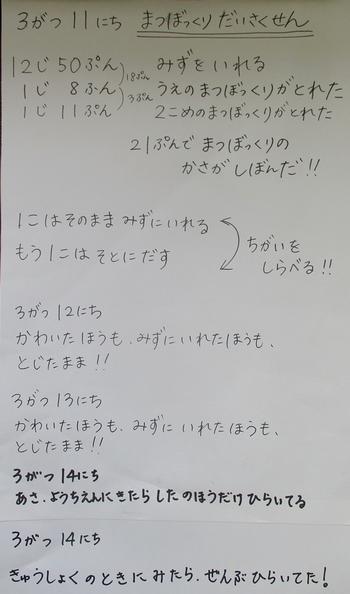 3がつ11にち まつぼっくり だいさくせん
12じ50ぷん みずをいれる
18ぷん
1じ 8ふん うえのまつぼっくりがとれた
3ぷん
1じ 11ぷん 2こめのまつぼっくりがとれた
21ぷんで まつぼっくりの
かさが しぼんだ!!
1こはそのまま みずにいれる
もう1こは そとにだす
ちがいを
しらべる!!
3がつ12にち
かわいたほうも、みずにいれたほうも、
とじたまま!!
3がつ13にち
かわいたほうも、みずに いれたほうも、
とじたまま!!
3がつ14にち
あさ、ようちえんにきたら したのほうだけ ひらいてる
3がつ14にち
きゅうしょくのときにみたら、ぜんぶひらいてた!